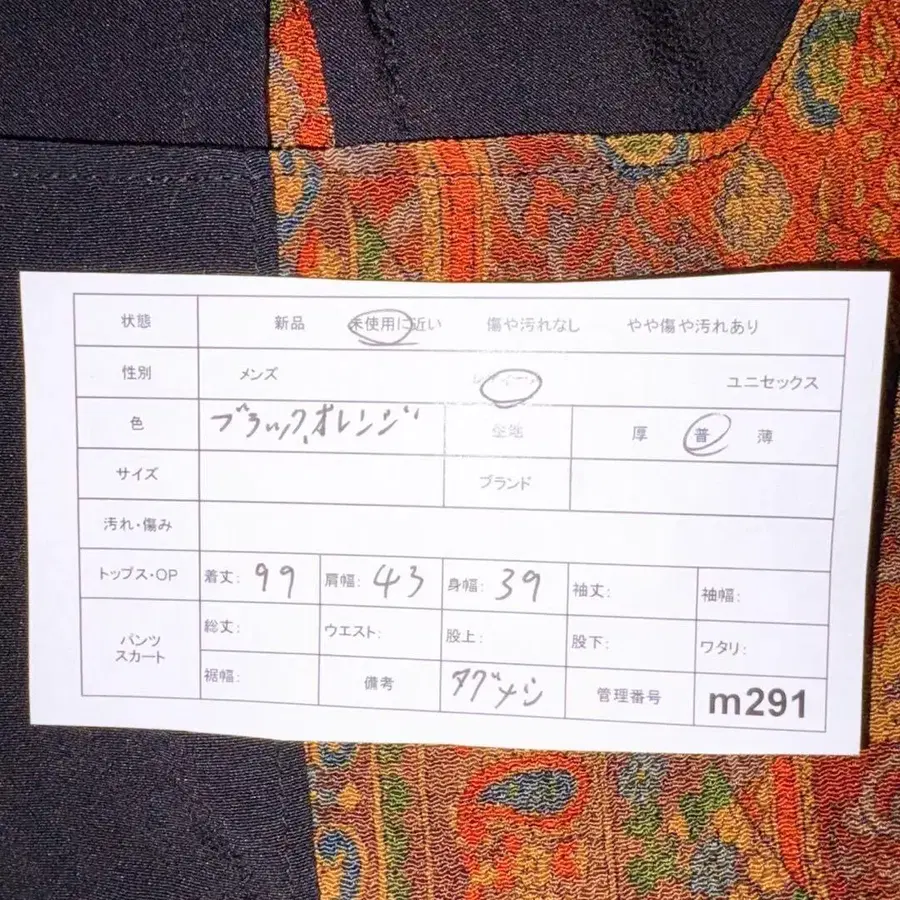 状態 新品 未使用に近い 傷や汚れなし やや傷や汚れあり
性別 メンズ ユニセックス
色 ブラック、オレンジ 生地 厚 普 薄
サイズ ブランド
汚れ・傷み
トップス・OP 着丈: 99 肩幅: 43 身幅: 39 袖丈: 袖幅:
パンツ スカート 総丈: ウエスト: 股上: 股下: ワタリ:
裾幅: 備考 タグナシ 管理番号 m291